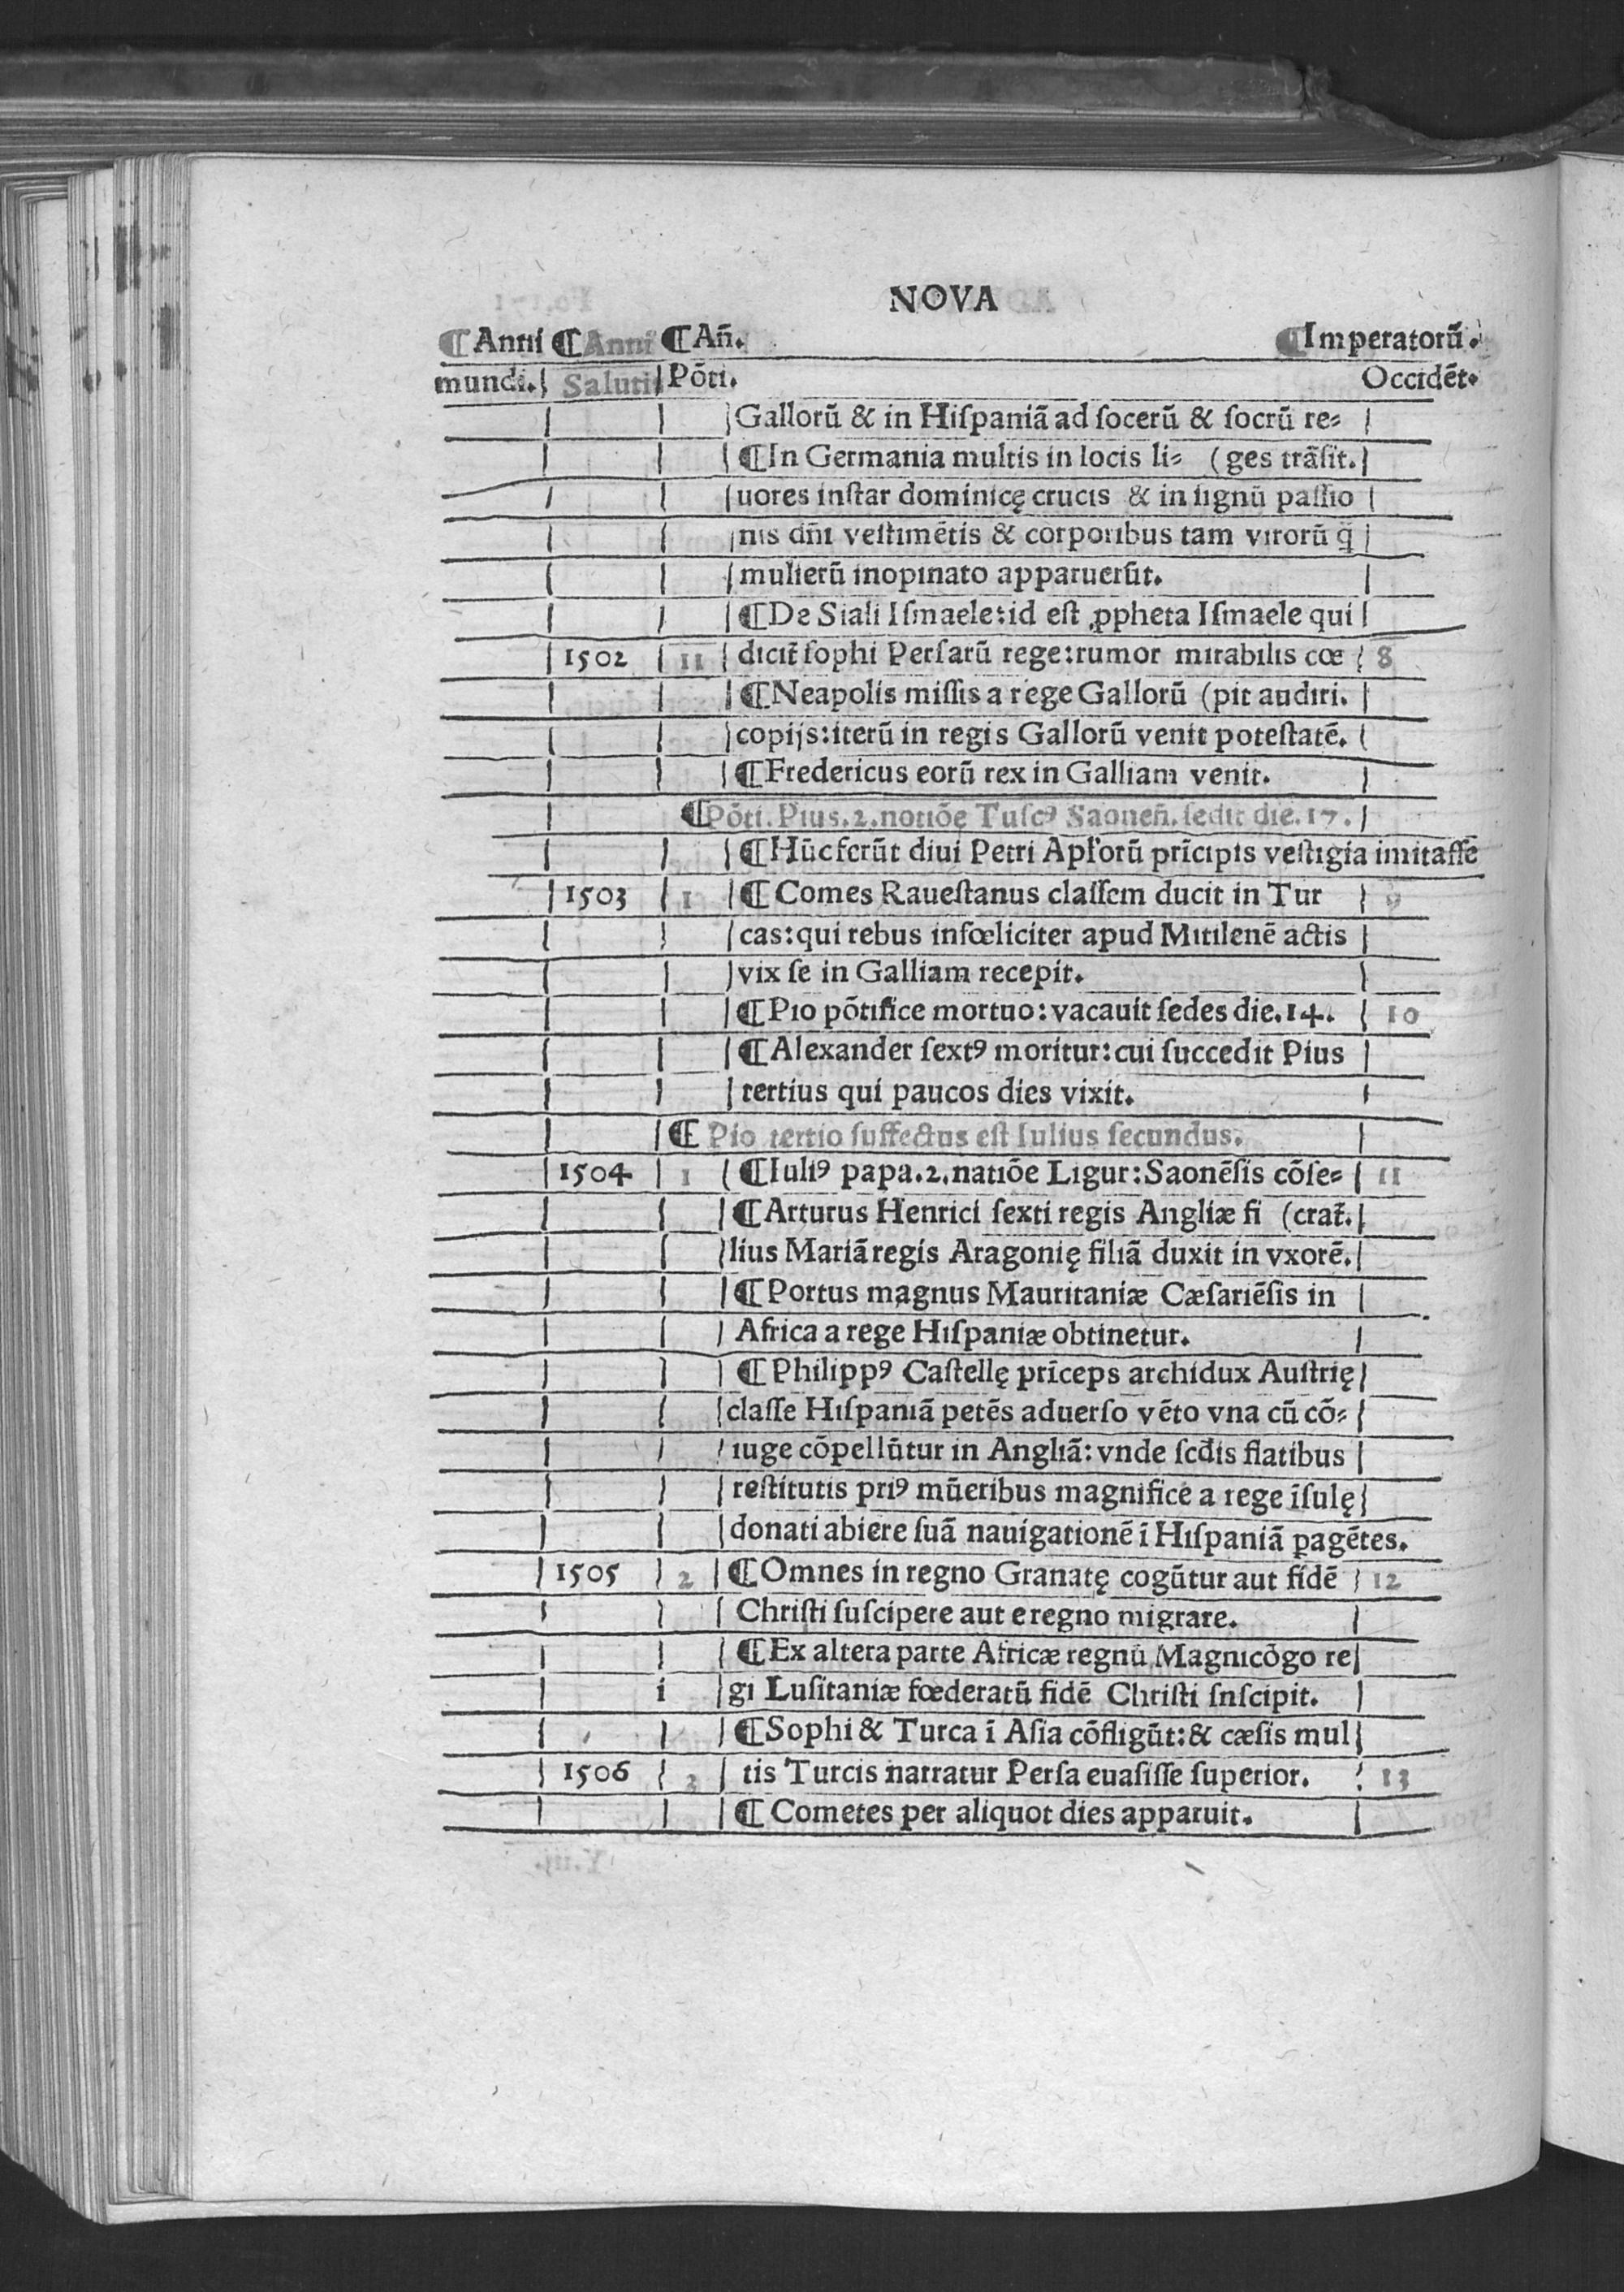 NOVA
¶Anni ¶Anni ¶Añ. ¶Imperatorũ.
mundi. Saluti Põti. Occidẽt.
Gallorũ & in Hiſpaniã ad ſocerũ & ſocrũ re⸗
¶In Germania multis in locis li⸗ (ges trãſit.
uores inſtar dominicę crucis & in ſignũ paſſio
nis dñi veſtimẽtis & corporibus tam virorũ q̃
mulierũ inopinato apparuerũt.
¶De Siali Iſmaele:id eſt ꝓpheta Iſmaele qui
1502 11 dicit̃ ſophi Perſarũ rege:rumor mirabilis cœ 8
¶Neapolis miſſis a rege Gallorũ (pit audiri.
copijs:iterũ in regis Gallorũ venit poteſtatẽ.
¶Fredericus eorũ rex in Galliam venit.
¶Põti. Pius.2.notiõe Tuſcꝰ Saoneñ.ſedit die.17.
¶Hũc ferũt diui Petri Apl'orũ prĩcipis veſtigia imitaſſe
1503 1 ¶ Comes Raueſtanus claſſem ducit in Tur 9
cas:qui rebus infœliciter apud Mitilenẽ actis
vix ſe in Galliam recepit.
¶Pio põtifice mortuo:vacauit ſedes die.14. 10
¶Alexander ſextꝰ moritur:cui ſuccedit Pius
tertius qui paucos dies vixit.
¶ Pio tertio ſuffectus eſt Iulius ſecundus.
1504 1 ¶Iuliꝰ papa.2.natiõe Ligur:Saonẽſis cõſe⸗ 11
¶Arturus Henrici ſexti regis Angliæ fi (crat̃.
lius Mariã regis Aragonię filiã duxit in vxorẽ.
¶Portus magnus Mauritaniæ Cæſariẽſis in
Africa a rege Hiſpaniæ obtinetur.
¶Philippꝰ Caſtellę prĩceps archidux Auſtrię
claſſe Hiſpaniã petẽs aduerſo vẽto vna cũ cõ⸗
iuge cõpellũtur in Angliã:vnde ſcd̃is flatibus
reſtitutis priꝰ mũeribus magnifice a rege ĩſulę
donati abiere ſuã nauigationẽ ĩ Hiſpaniã pagẽtes.
1505 2 ¶Omnes in regno Granatę cogũtur aut fidẽ 12
Chriſti ſuſcipere aut e regno migrare.
¶Ex altera parte Africæ regnũ Magnicõgo re
i gi Luſitaniæ fœderatũ fidẽ Chriſti ſnſcipit.
¶Sophi & Turca ĩ Aſia cõfligũt:& cæſis mul
1506 3 tis Turcis narratur Perſa euaſiſſe ſuperior. 13
¶ Cometes per aliquot dies apparuit.